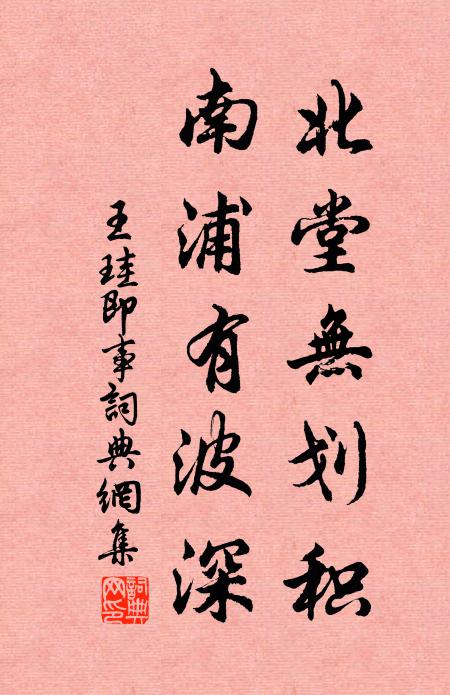 北堂無划积
南浦有波深
王珪即事詞典網集
詞典网印